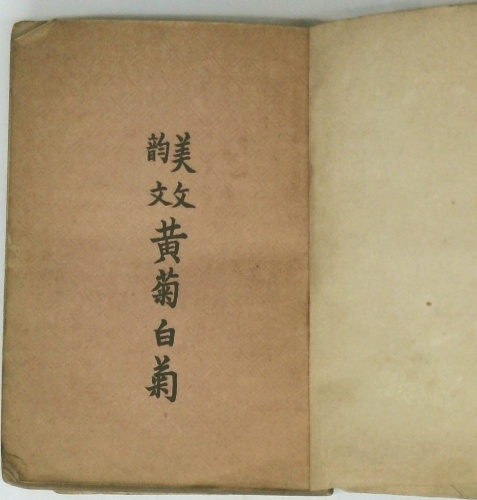 美文
韵文
黄菊白菊